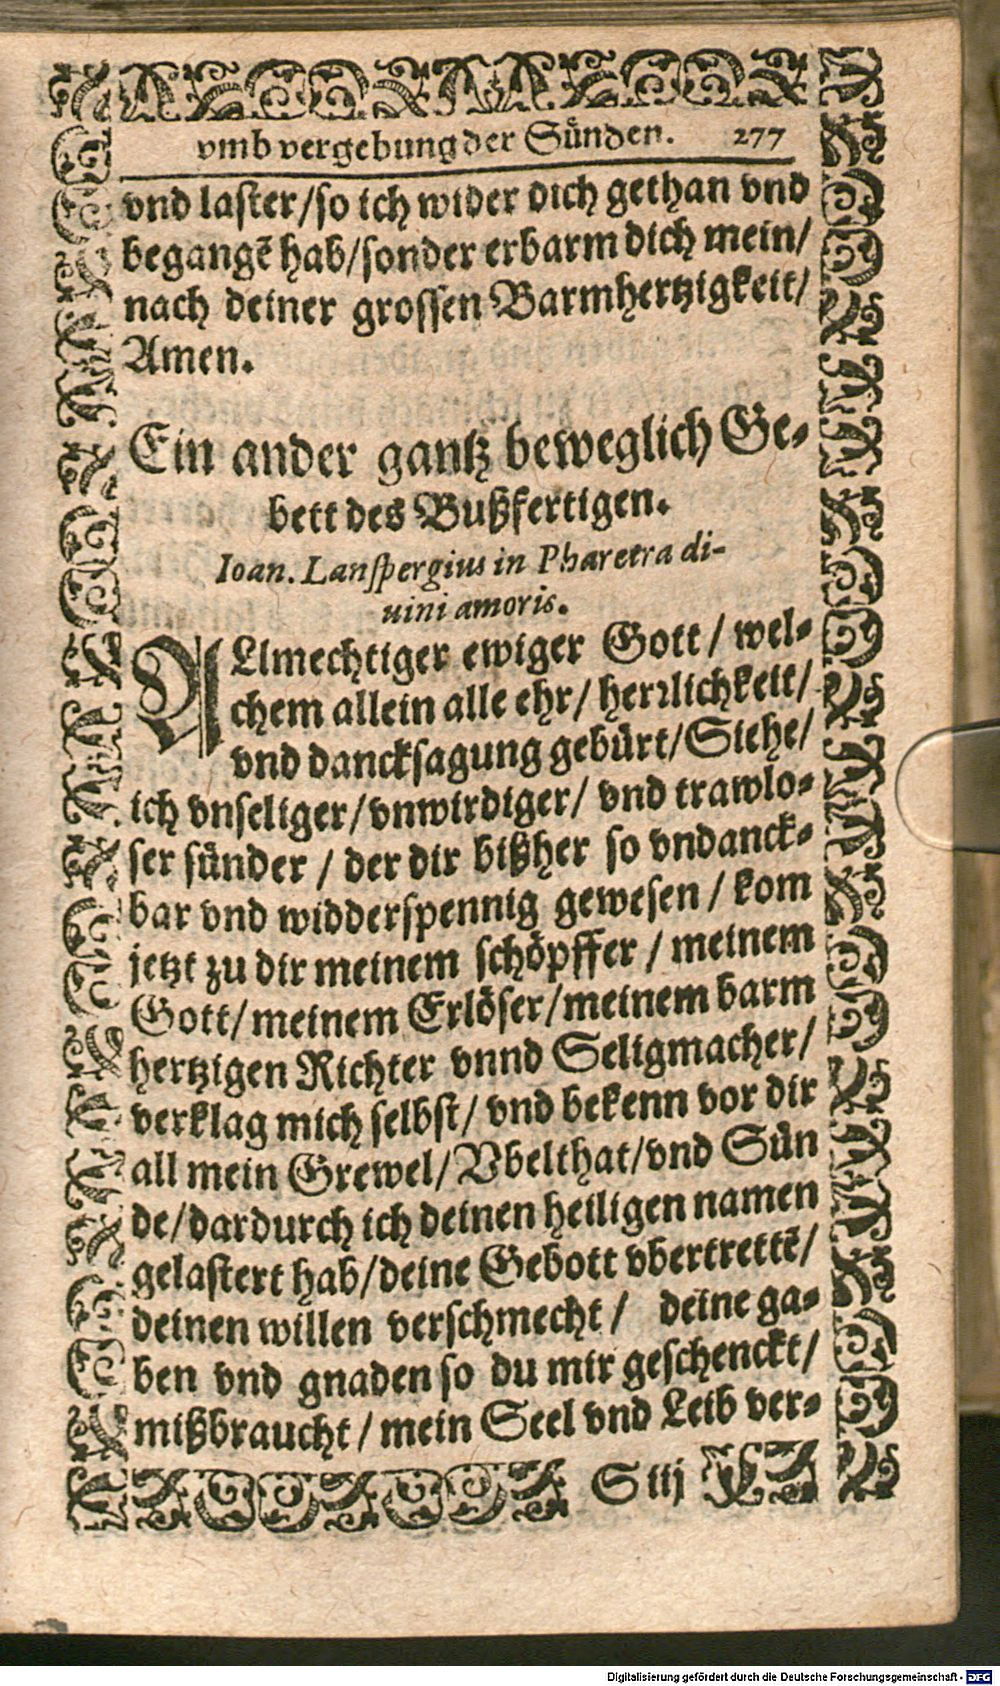 vmb vergebung der Sünden. 277
vnd laster/so ich wider dich gethan vnd
begangẽ hab/sonder erbarm dich mein/
nach deiner grossen Barmhertzigkeit/
Amen.
Ein ander gantz beweglich Ge-
bett des Bußfertigen.
Ioan. Lanspergius in Pharetra di-
uini amoris.
ALlmechtiger ewiger Gott / wel-
chem allein alle ehr/ herrlichkeit/
vnd dancksagung gebürt/Siehe/
ich vnseliger/vnwirdiger/ vnd trawlo-
ser sünder / der dir bißher so vndanck-
bar vnd widderspennig gewesen / kom
jetzt zu dir meinem schöpffer / meinem
Gott/ meinem Erlöser/meinem barm
hertzigen Richter vnnd Seligmacher/
verklag mich selbst/ vnd bekenn vor dir
all mein Grewel/Vbelthat/vnd Sün
de/dardurch ich deinen heiligen namen
gelastert hab/deine Gebott vbertrettẽ/
deinen willen verschmecht / deine ga-
ben vnd gnaden so du mir geschenckt/
mißbraucht / mein Seel vnd Leib ver-
S iij
Digitalisierung gefördert durch die Deutsche Forschungsgemeinschaft - DFG